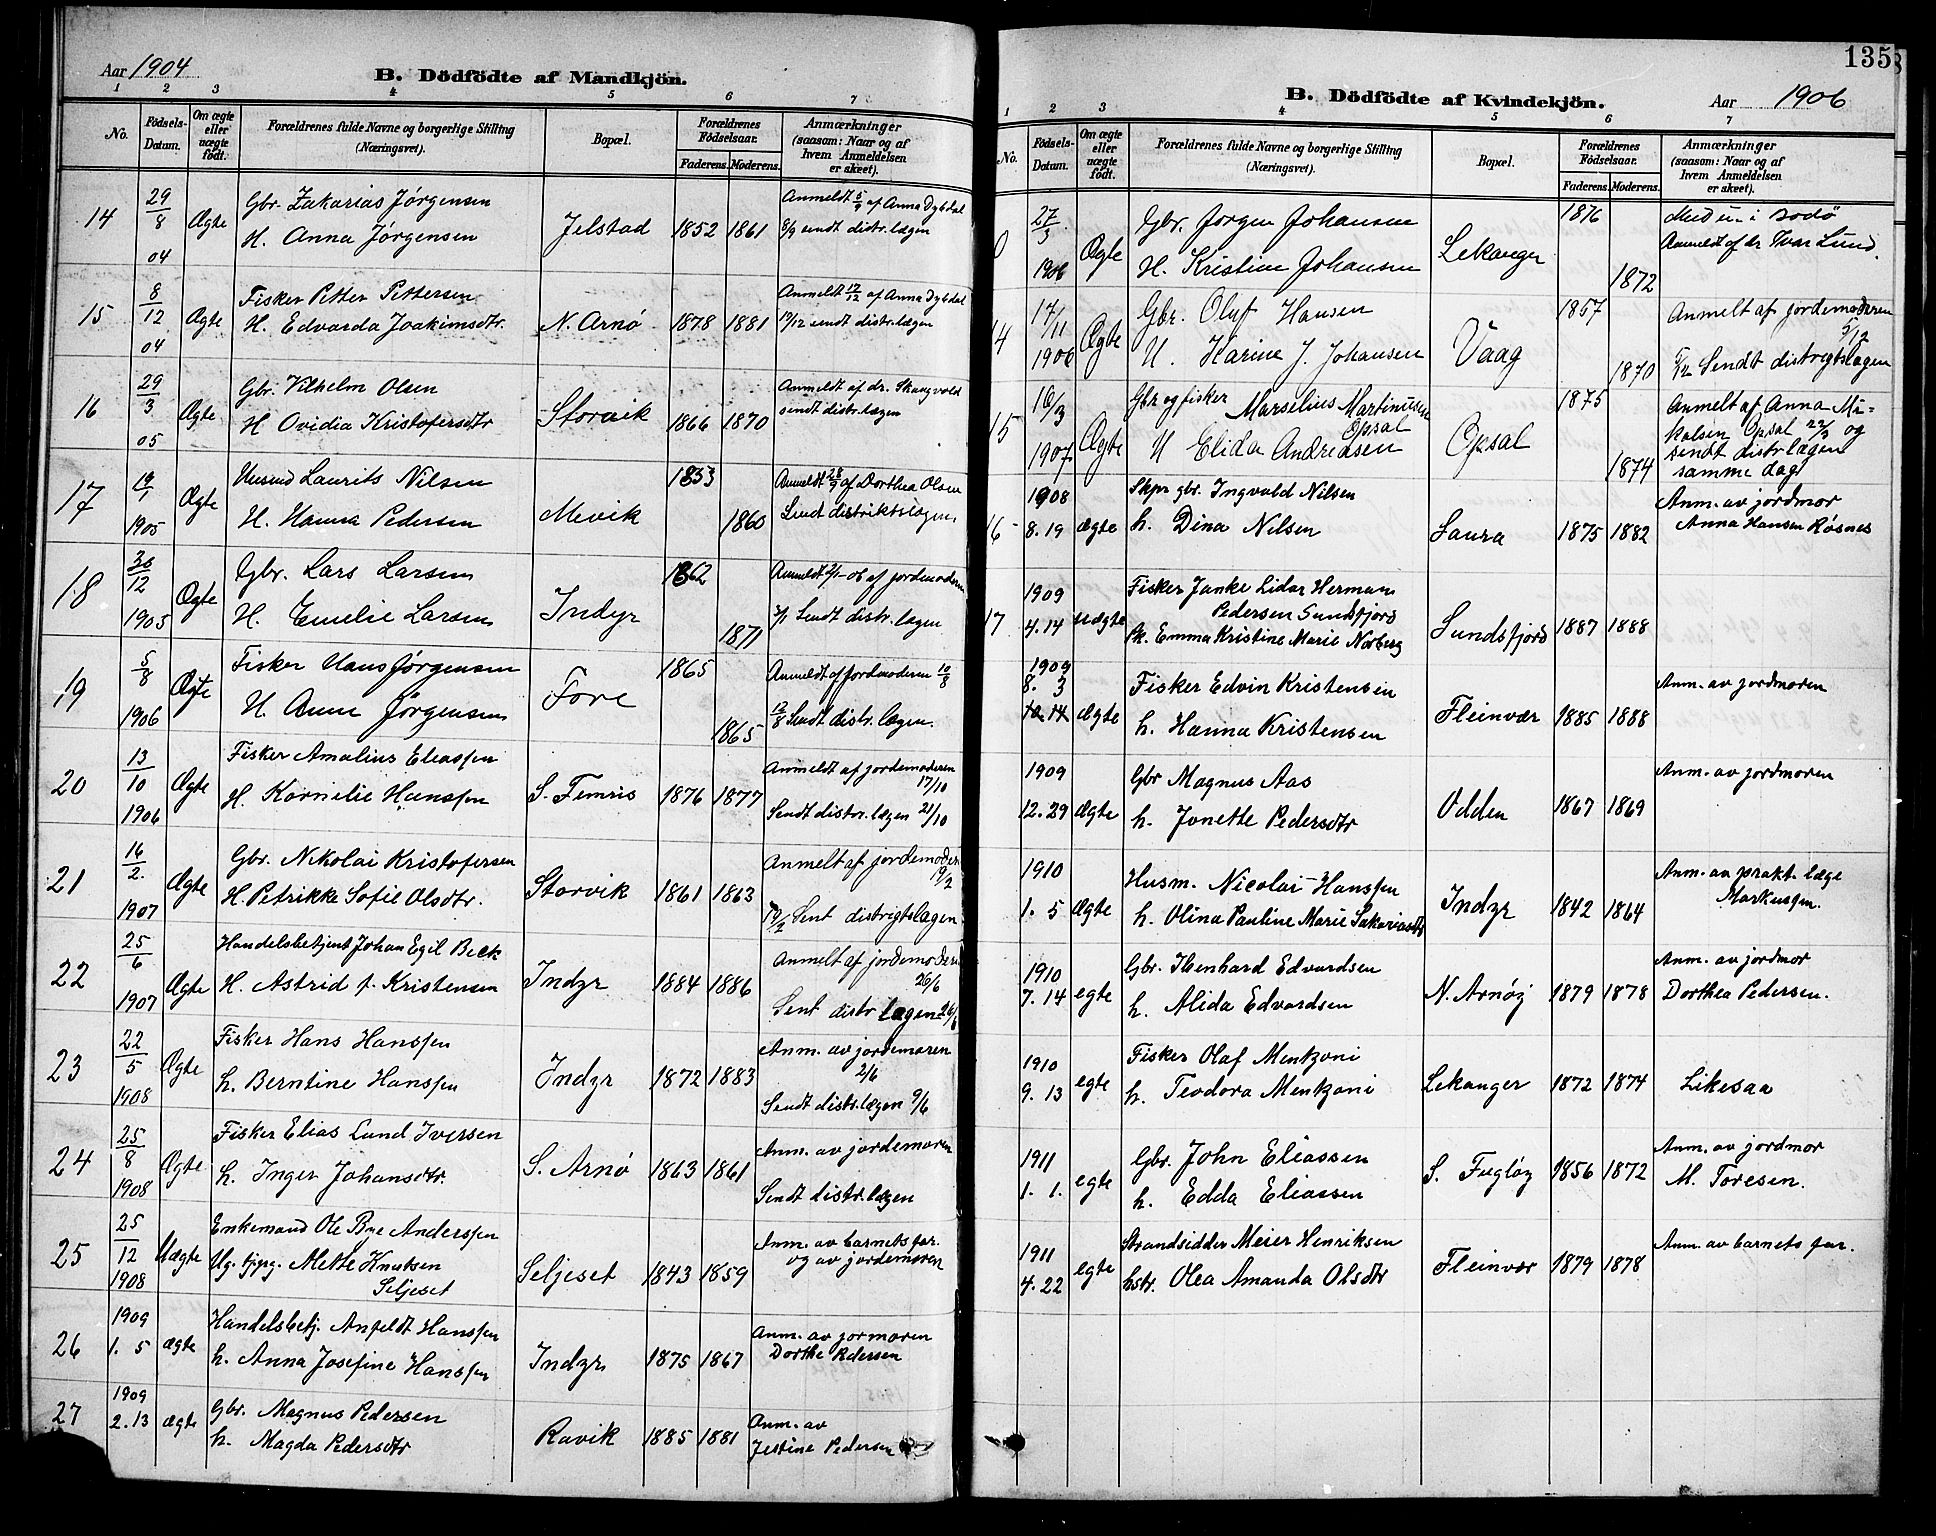 Aar 1904
B. Dödfödte af Mandkjön.
1 2 3 4 5 6 7
No.
Födsels-Datum.
Om ægte eller uægte födt.
Forældrenes fulde Navne og borgerlige Stilling (Næringsvei).
Bopæl.
Forældrenes Födselsaar.
Faderens. Moderens.
Anmærkninger (saasom: Naar og af hvem Anmeldelsen er skeet).
14 29/8 04 Ægte Gbr. Zakarias Jörgensen
H. Anna Jörgensen Jelstad 1852 1861 Anmeldt 5/9 af Anna Dybdal
8/9 sendt distr. lægen
15 8/12 04 Ægte Fisker Petter Pettersen
H. Edvarda Joakimsdtr. N. Arnö 1878 1881 Anmeldt 12/12 af Anna Dybdal
19/12 sendt distr. lægen
16 29/3 05 Ægte Gbr. Vilhelm Olsen
H Ovidia Kristofersdtr Storvik 1866 1870 Anmeldt af dr. Skaugvold
sendt distr. lægen
17 19/1 1905 Ægte Husmd Laurits Nilsen
H. Hanna Pedersen Mevik 1833 1860 Anmeldt af Dorthea Olsen
Sendt distriktslægen
18 30/12 1905 Ægte Gbr. Lars Larsen
H. Emelie Larsen Indyr 1862 1871 Anmeldt 2/1-06 af jordemoderen
2/1 Sendt distr. lægen
19 5/8 1906 Ægte Fisker Hans Jørgensen
H. Anne Jørgensen Fore 1865 1865 Anmeldt af Jordmoderen 10/8
12/8 Sendt distr. lægen.
20 13/10 1906 Ægte Fisker Amalius Eliassen
H. Kornelie Hanssen S. Femris 1876 1877 Anmeldt af jordemoderen 17/10
Sendt distr. lægen 21/10
21 16/2. 1907 Ægte Gbr. Nikolai Kristofersen
H. Petrikke Sofie Olsdtr. Storvik 1861 1863 Anmelt af jordemoder 19/2
19/2 Sent distrigtslægen
22 25/6 1907 Ægte Handelsbetjent Johan Egil Beck
H. Astrid f. Kristensen Indyr 1884 1886 Anmelt af jordemoder 26/6
Sent distr. lægen 26/6
23 22/5 1908 Ægte Fisker Hans Hanssen
h. Berntine Hanssen Indyr 1872 1883 Anm. av jordemoren 2/6
Sendt distr. lægen 9/6
24 25/8 1908 Ægte Fisker Elias Lund Iversen
h. Inger Johansdtr. S. Arnö 1863 1861 Anm. av jordemoren
Sendt distr. lægen
25 25/12 1908 Uægte Enkemand Ole Bye Anderssen
Ug. tjpg. Mette Knutsen
Seljeset Seljeset 1843 1859 Anm. av barnets far.
og av jordemoren
26 1909 1. 5 ægte Handelsbetj. Anfeldt Hanssen
h. Anna Josefine Hanssen Indyr 1875 1867 Anm. av jormoren
Dorthe Pedersen
27 1909 2.13 ægte Gbr. Magnus Pedersen
h. Magda Pedersdtr Ravik 1885 1881 Anm. av
Jestine Pedersen
135
B. Dödfödte af Kvindekjön.
Aar 1906
1 2 3 4 5 6 7
No.
Födsels-Datum.
Om ægte eller uægte födt.
Forældrenes fulde Navne og borgerlige Stilling (Næringsvei).
Bopæl.
Forældrenes Födselsaar.
Faderens. Moderens.
Anmærkninger (saasom: Naar og af hvem Anmeldelsen er skeet).
27/3 1906 Ægte Gbr. Jörgen Johansen
H. Kristine Johansen Lekanger 1876 1872 i Bodø
Anmeldt af dr. Ivar Lund.
4 17/11 1906 Ægte Gbr. Oluf Hansen
H. Karine J. Johansen Vaag 1857 1870 Anmelt af jordemoderen 5/12
5/12 Sendt distrigtslægen
15 16/3 1907 Ægte Gbr og fisker Marselius Martinusen
Opsal
H Elida Andreasen Opsal 1875 1874 Anmelt af Anna Mi-
kalsen Opsal 22/3 og
sendt distr. lægen
samme dag
16 1908 8.19 ægte Skpr gbr. Ingvald Nilsen
h. Dina Nilsen Saura 1875 1882 Anm. av jordmor
Anna Hansen Røsnes
17 1909 4.14 uægte Fisker Janke Lidar Herman
Pedersen Sundsfjord
Pk. Emma Kristine Marie Norberg Sundsfjord 1887 1888
1909 8. 3 10.14 ægte Fisker Edvin Kristensen
h. Hanna Kristensen Fleinvær 1885 1888 Anm. av jordmoren
1909 12.29 ægte Gbr Magnus Aas
h. Jonette Pedersdtr Odden 1867 1869 Anm. av jordmoren
1910 1. 5 ægte Husm. Nicolai Hanssen
h. Olina Pauline Marie Sakariasdtr Indyr 1842 1864 Anm. av prakt. læge
Markussen.
1910 7.14 egte Gbr. Ilenhard Edvardsen
h. Alida Edvardsen N. Arnøy 1879 1878 Anm. av jordmor
Dorthea Pedersen.
1910 9. 13 egte Fisker Olaf Mentzoni
h. Teodora Mentzoni Lekanger 1872 1874 Likesaa
1911 1. 1. egte Gbr. John Eliassen
h. Edda Eliassen S. Fugløy 1856 1872 Anm. av jordmor
M. Toresen.
1911 4.22 egte Strandsidder Meier Henriksen
hstr. Olea Amanda Olsdtr Fleinvær 1879 1878 Anm. av barnets far.